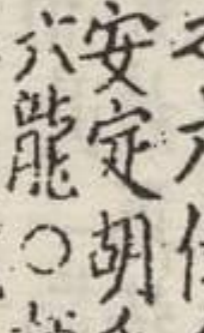 安定胡
六龍〇